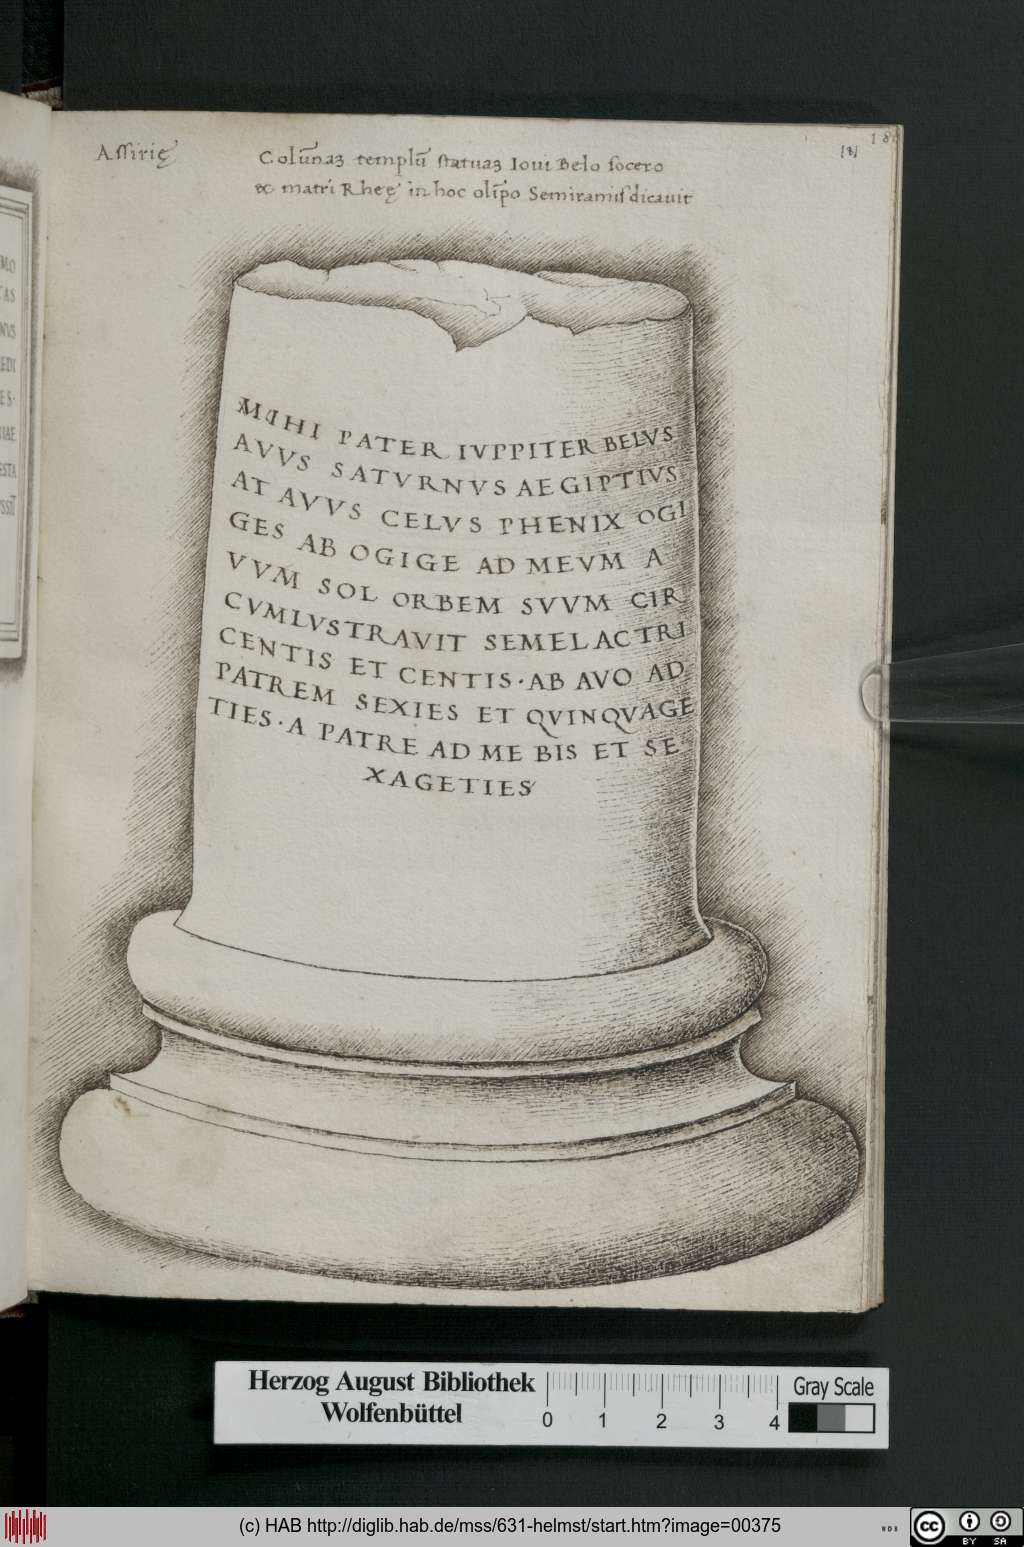 Assirię
181
18
Colūnaʒ templū statuaʒ Ioui Belo socero
& matri Rheę in hoc olīpo Semiramis dicauit
MIHI PATER IVPPITER BELVS
AVVS SATVRNVS AEGIPTIVS
AT AVVS CELVS PHENIX OGI
GES AB OGIGE AD MEVM A
VVM SOL ORBEM SVVM CIR
CVMLVSTRAVIT SEMEL AC TRI
CENTIS ET CENTIS · AB AVO AD
PATREM SEXIES ET QVINQVAGE
TIES · A PATRE AD ME BIS ET SE
XAGETIES
MO
NVS
EDI
ES·
IAE
ESTA
Herzog August Bibliothek
Wolfenbüttel
0 1 2 3 4
Gray Scale
(c) HAB http://diglib.hab.de/mss/631-helmst/start.htm?image=00375
WDB
cc BY SA